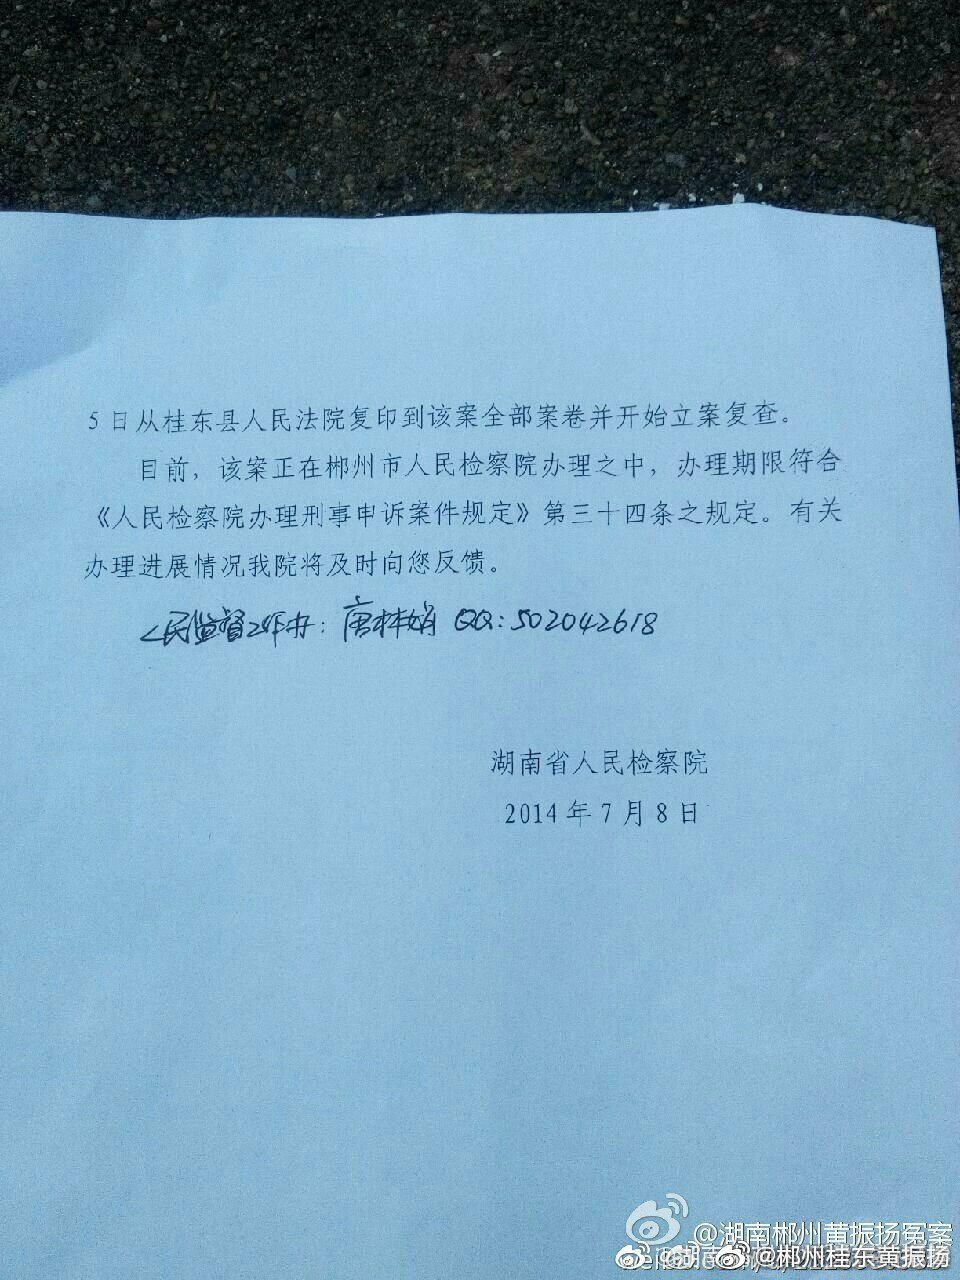 5日从桂东县人民法院复印到该案全部案卷并开始立案复查。
目前，该案正在郴州市人民检察院办理之中，办理期限符合
《人民检察院办理刑事申诉案件规定》第三十四条之规定。有关
办理进展情况我院将及时向您反馈。
人民监督工作办：唐林娟 QQ：502042618
湖南省人民检察院
2014年7月8日
@湖南郴州黄振扬冤案
@郴州桂东黄振扬